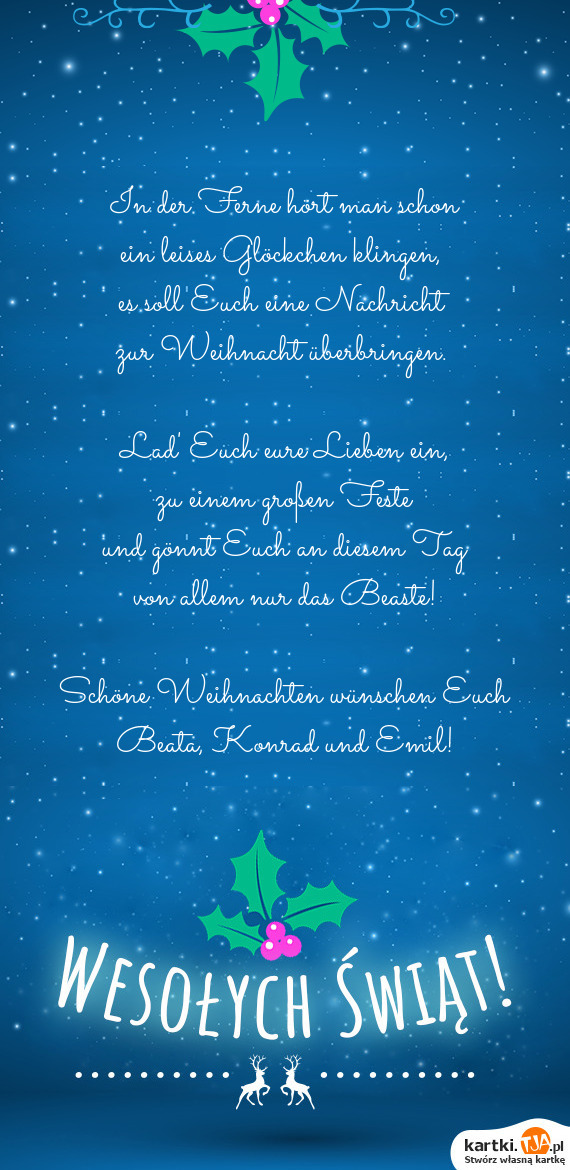 In der Ferne hört man schon
ein leises Glöckchen klingen,
es soll Euch eine Nachricht
zur Weihnacht überbringen.
Lad' Euch eure Lieben ein,
zu einem großen Feste
und gönnt Euch an diesem Tag
von allem nur das Beaste!
Schöne Weihnachten wünschen Euch
Beata, Konrad und Emil!
Wesołych Świąt!
kartki.TJA.pl
Stwórz własną kartkę